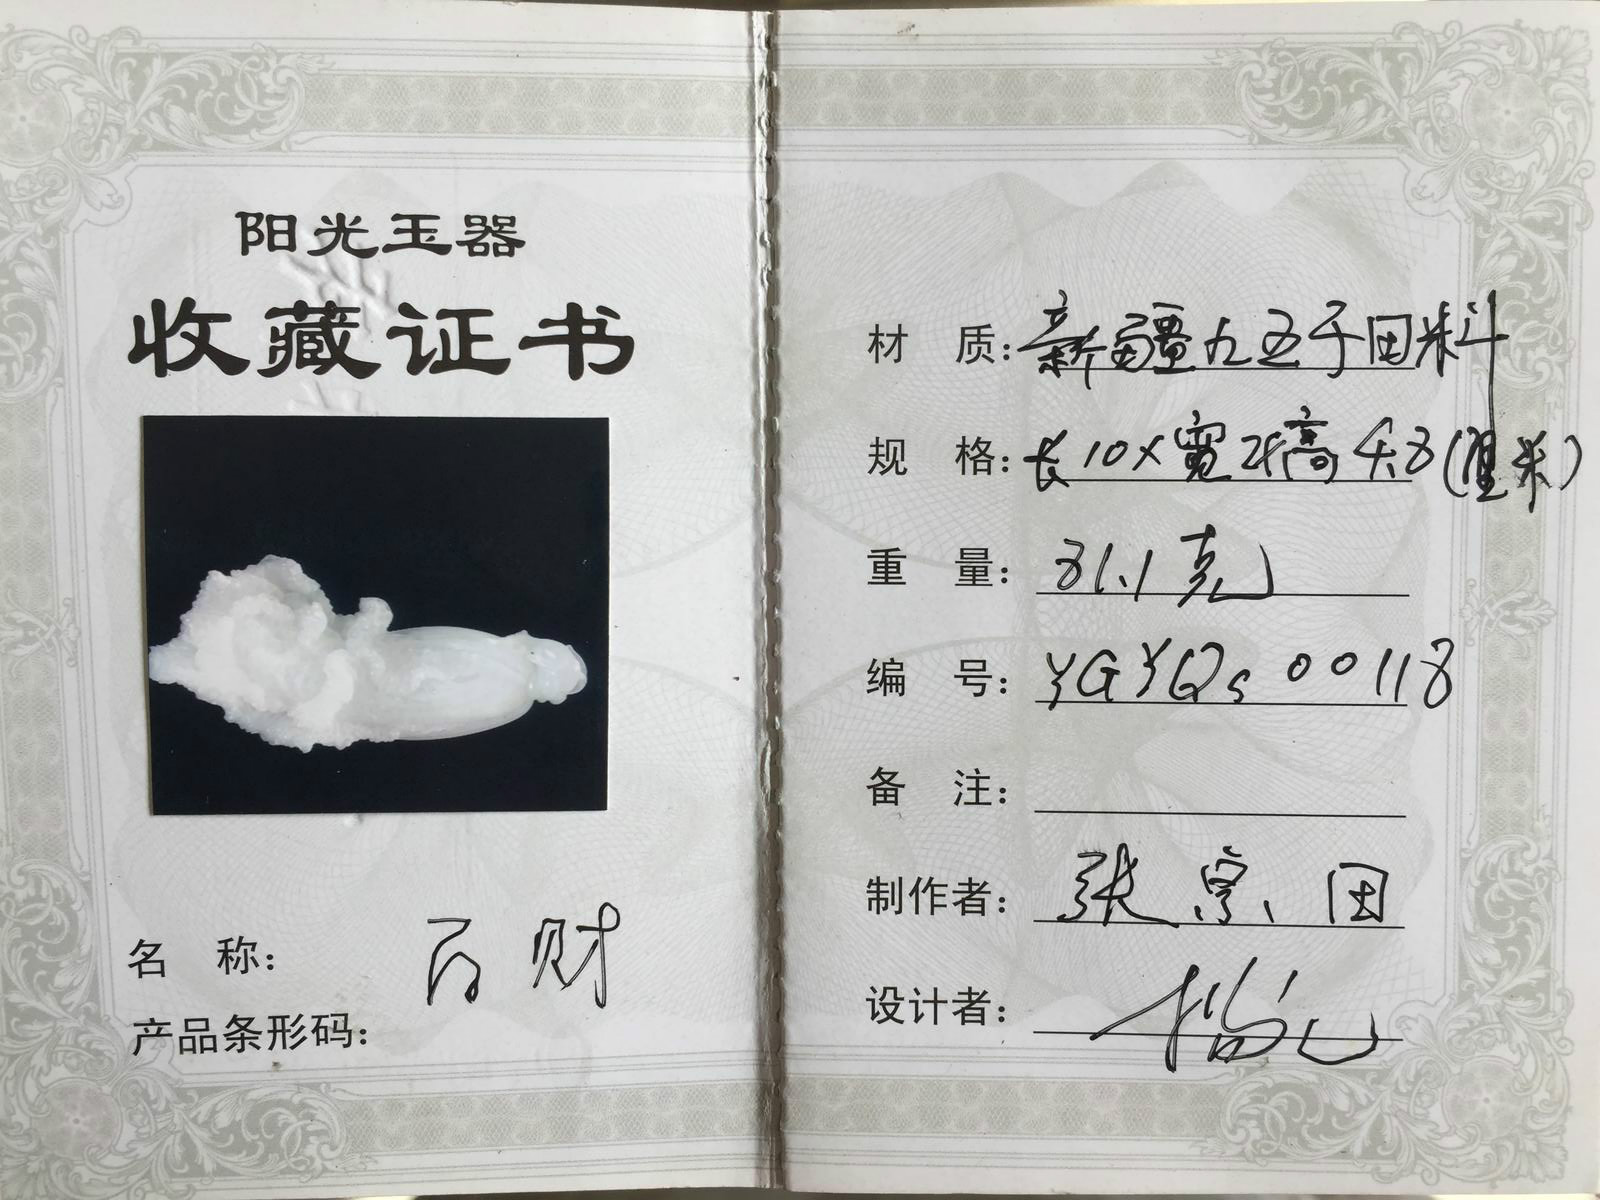 阳光玉器
收藏证书
名 称：百财
产品条形码：
材 质：新疆九五于田料
规 格：长10×宽2×高4.8(厘米)
重 量：81.1克
编 号：YGYQs00118
备 注：
制作者：张京田
设计者：杨光